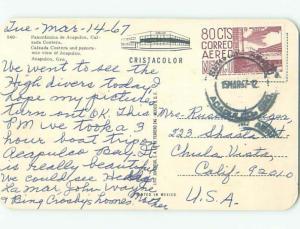 Tue-Mar-14-67
940-
Panorámica de Acapulco, Calzada Costera.
Calzada Costera and panoramic view of Acapulco.
Acapulco, Gro.
CRISTACOLOR
80 CTS
CORREO
AEREO
We went to see the
High divers today I
hope my pictures
turn out OK. This
PM we took a 3
hour boat trip on
Acapulco Bay. It
is really beautiful.
We could see Hedy
Lamar, John Wayne,
& Bing Crosbys homes.
Mother
Mrs.
223 Shasta St.
Chula Vista,
Calif-92010
U.S.A.
PRINTED IN MEXICO